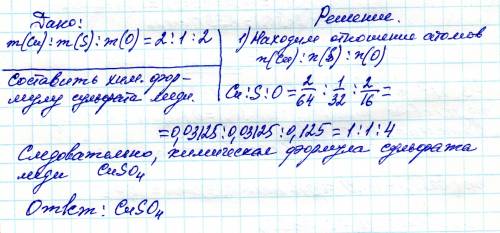 Дано:
m(Cu) : m(S) : m(O) = 2 : 1 : 2
составить хим. фор-
мулу сульфата меди.
Решение.
1) Находим отношение атомов
n(Cu) : n(S) : n(O)
Cu : S : O = 2/64 : 1/32 : 2/16 =
= 0,03125 : 0,03125 : 0,125 = 1 : 1 : 4
Следовательно, химическая формула сульфата
меди CuSO₄
Ответ: CuSO₄